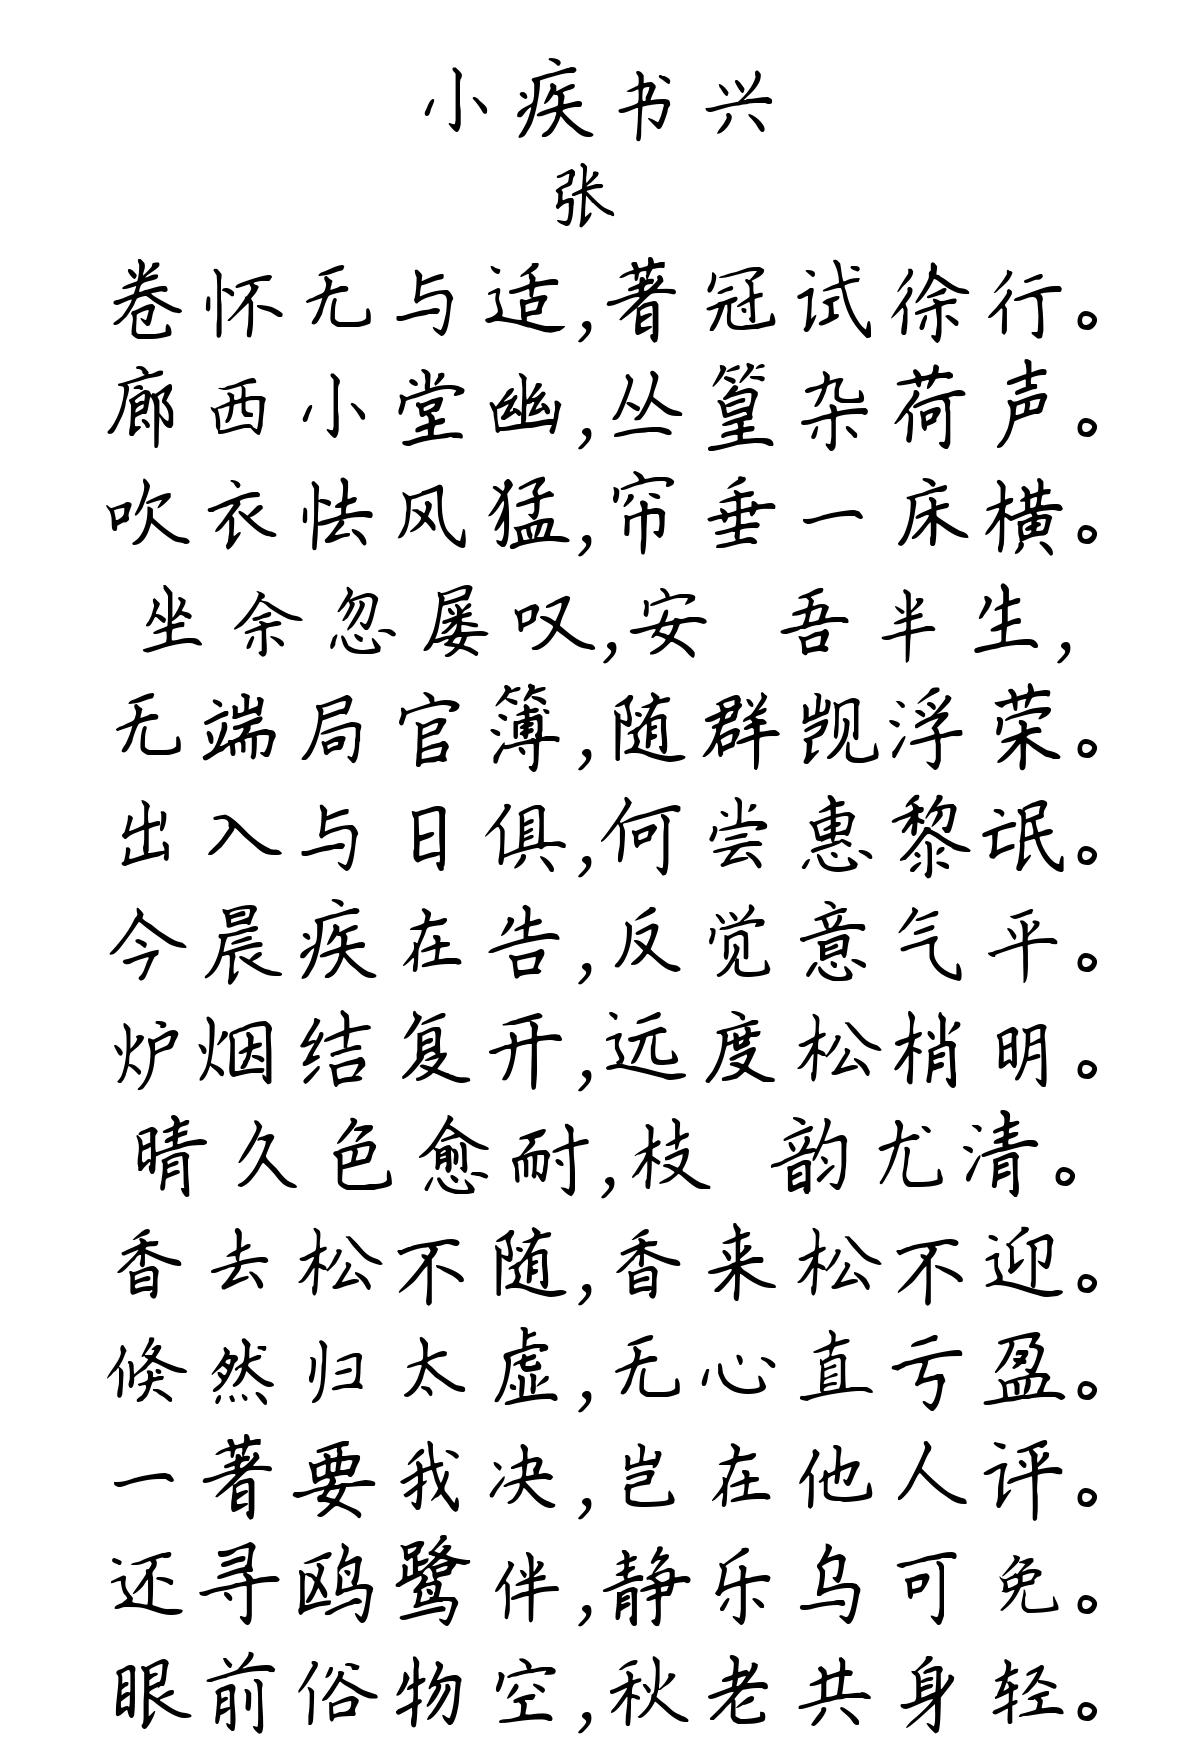 小疾书兴
张
卷怀无与适,著冠试徐行。
廊西小堂幽,丛篁杂荷声。
吹衣怯风猛,帘垂一床横。
坐余忽屡叹,安 吾半生,
无端局官簿,随群觊浮荣。
出入与日俱,何尝惠黎氓。
今晨疾在告,反觉意气平。
炉烟结复开,远度松梢明。
晴久色愈耐,枝 韵尤清。
香去松不随,香来松不迎。
倏然归太虚,无心直亏盈。
一著要我决,岂在他人评。
还寻鸥鹭伴,静乐乌可免。
眼前俗物空,秋老共身轻。